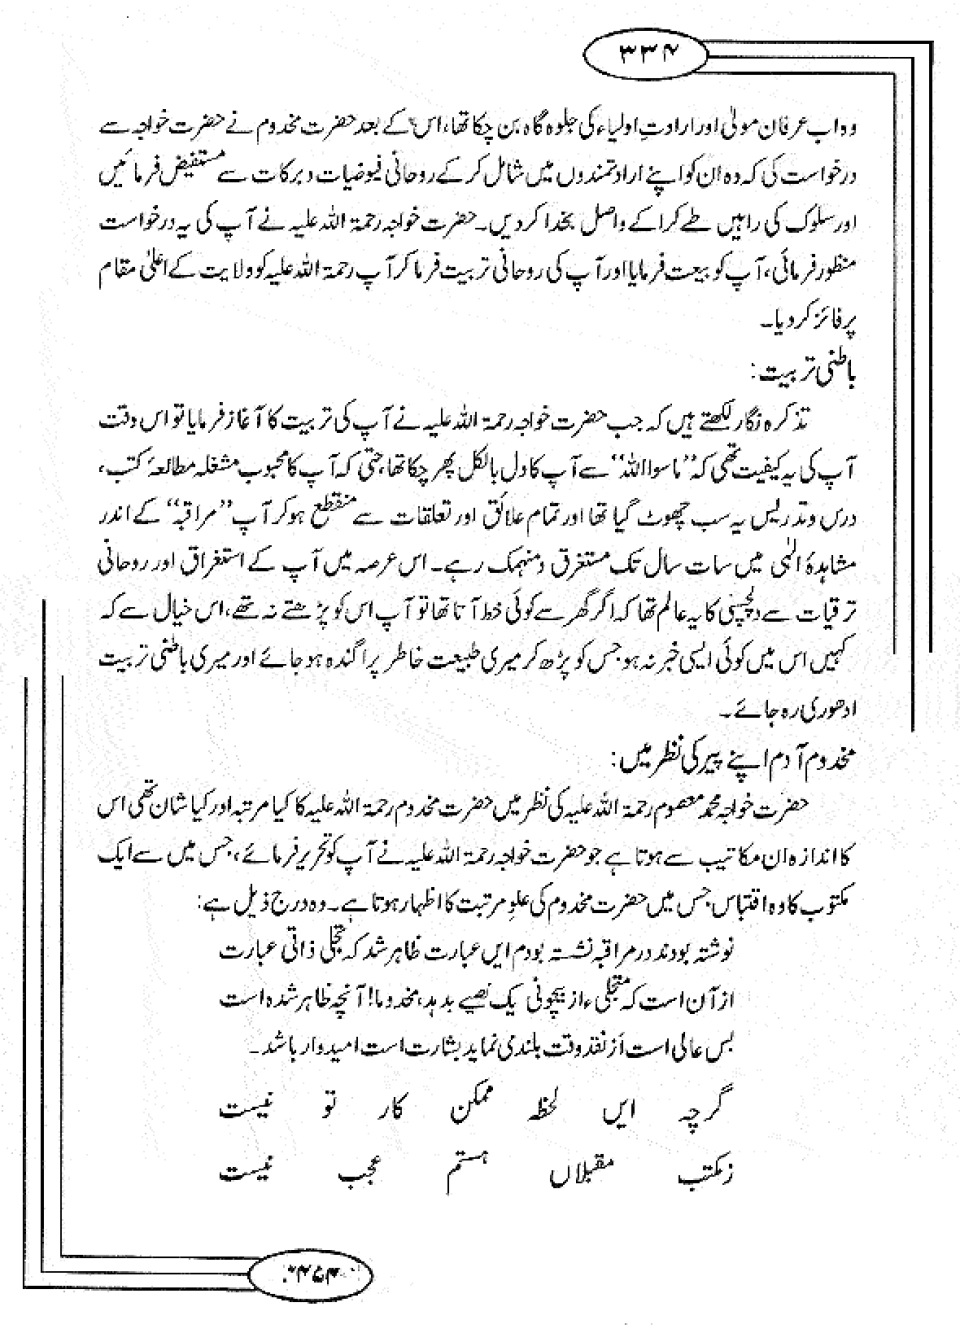 ۳۳۴
وہ اب عرفان مولیٰ اور ارادتِ اولیاء کی جلوہ گاہ بن چکا تھا، اس کے بعد حضرت مخدوم نے حضرت خواجہ سے
درخواست کی کہ وہ ان کو اپنے ارادتمندوں میں شامل کر کے روحانی فیوضیات و برکات سے مستفیض فرمائیں
اور سلوک کی راہیں طے کرا کے واصل بخدا کر دیں۔ حضرت خواجہ رحمۃ اللہ علیہ نے آپ کی یہ درخواست
منظور فرمائی، آپ کو بیعت فرمایا اور آپ کی روحانی تربیت فرما کر آپ رحمۃ اللہ علیہ کو ولایت کے اعلیٰ مقام
پر فائز کر دیا۔
باطنی تربیت:
تذکرہ نگار لکھتے ہیں کہ جب حضرت خواجہ رحمۃ اللہ علیہ نے آپ کی تربیت کا آغاز فرمایا تو اس وقت
آپ کی یہ کیفیت تھی کہ ”ماسوا اللہ“ سے آپ کا دل بالکل پھر چکا تھا، حتیٰ کہ آپ کا محبوب مشغلہ مطالعۂ کتب،
درس و تدریس یہ سب چھوٹ گیا تھا اور تمام علائق اور تعلقات سے منقطع ہو کر آپ ”مراقبہ“ کے اندر
مشاہدۂ الٰہی میں سات سال تک مستغرق و منہمک رہے۔ اس عرصہ میں آپ کے استغراق اور روحانی
ترقیات سے دلچسپی کا یہ عالم تھا کہ اگر گھر سے کوئی خط آتا تھا تو آپ اس کو پڑھتے نہ تھے، اس خیال سے کہ
کہیں اس میں کوئی ایسی خبر نہ ہو جس کو پڑھ کر میری طبیعت خاطر پراگندہ ہو جائے اور میری باطنی تربیت
ادھوری رہ جائے۔
مخدوم آدم اپنے پیر کی نظر میں:
حضرت خواجہ محمد معصوم رحمۃ اللہ علیہ کی نظر میں حضرت مخدوم رحمۃ اللہ علیہ کا کیا مرتبہ اور کیا شان تھی اس
کا اندازہ ان مکاتیب سے ہوتا ہے جو حضرت خواجہ رحمۃ اللہ علیہ نے آپ کو تحریر فرمائے، جس میں سے ایک
مکتوب کا وہ اقتباس جس میں حضرت مخدوم کی علوِ مرتبت کا اظہار ہوتا ہے۔ وہ درج ذیل ہے:
نوشتہ بودند در مراقبہ نشستہ بودم ایں عبارت ظاہر شد کہ تجلی ذاتی عبارت
از آن است کہ متجلیٰ ءاز بیچونی یک نصیبے بدہد، مخدوما! آنچہ ظاہر شدہ است
بس عالی است از نقد وقت بلندی نماید بشارت است امیدوار باشد۔
گرچہ ایں لحظہ ممکن کار تو نیست
زمکتب مقبلاں ہستم عجب نیست